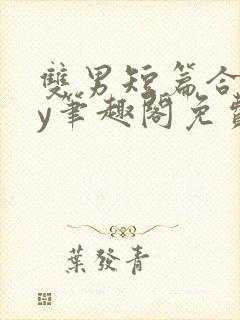 雙男短篇合
y筆趣閣免費
葉發青